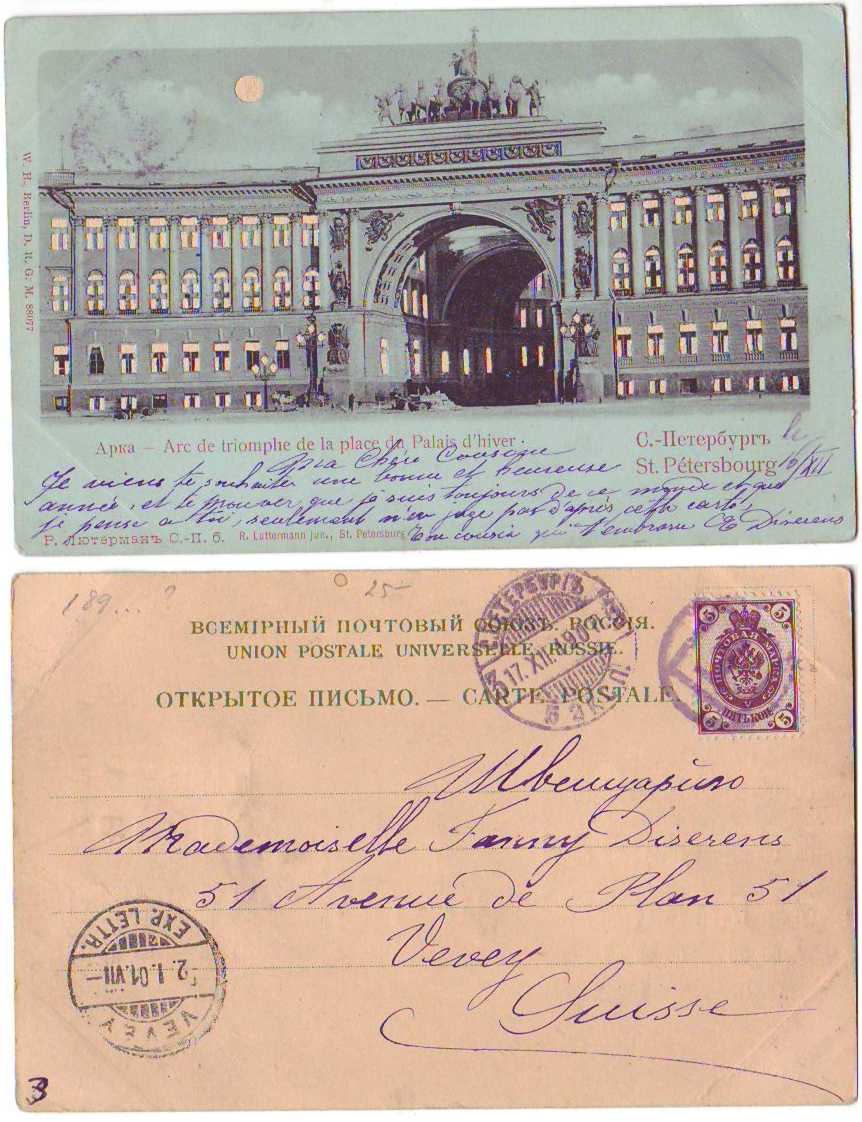 W. H., Berlin, D. R. G. M. 88077
Арка — Arc de triomphe de la place du Palais d'hiver.
С.-Петербургъ
St. Pétersbourg
le 16/XII
Ma Chère Cousine
Je viens te souhaiter une bonne et heureuse
année, et te prouver que je suis toujours de ce monde et que
je pense à toi, seulement n'en juge pas d'après cette carte,
Ton cousin qui t'embrasse E Diserens
Р. Лютерманъ С.-П. б. R. Luttermann jun., St. Petersburg
189...? 25-
ВСЕМІРНЫЙ ПОЧТОВЫЙ СОЮЗЪ. РОССІЯ.
UNION POSTALE UNIVERSELLE. RUSSIE.
ОТКРЫТОЕ ПИСЬМО. — CARTE POSTALE.
17.XII.190
5 5
ПОЧТОВАЯ МАРКА
ПЯТЬ КОП
5 5
Швейцарию
Mademoiselle Fanny Diserens
51 Avenue de Plan 51
Vevey
Suisse
VEVEY
2.I.01.VII-
EXP. LETTR.
3